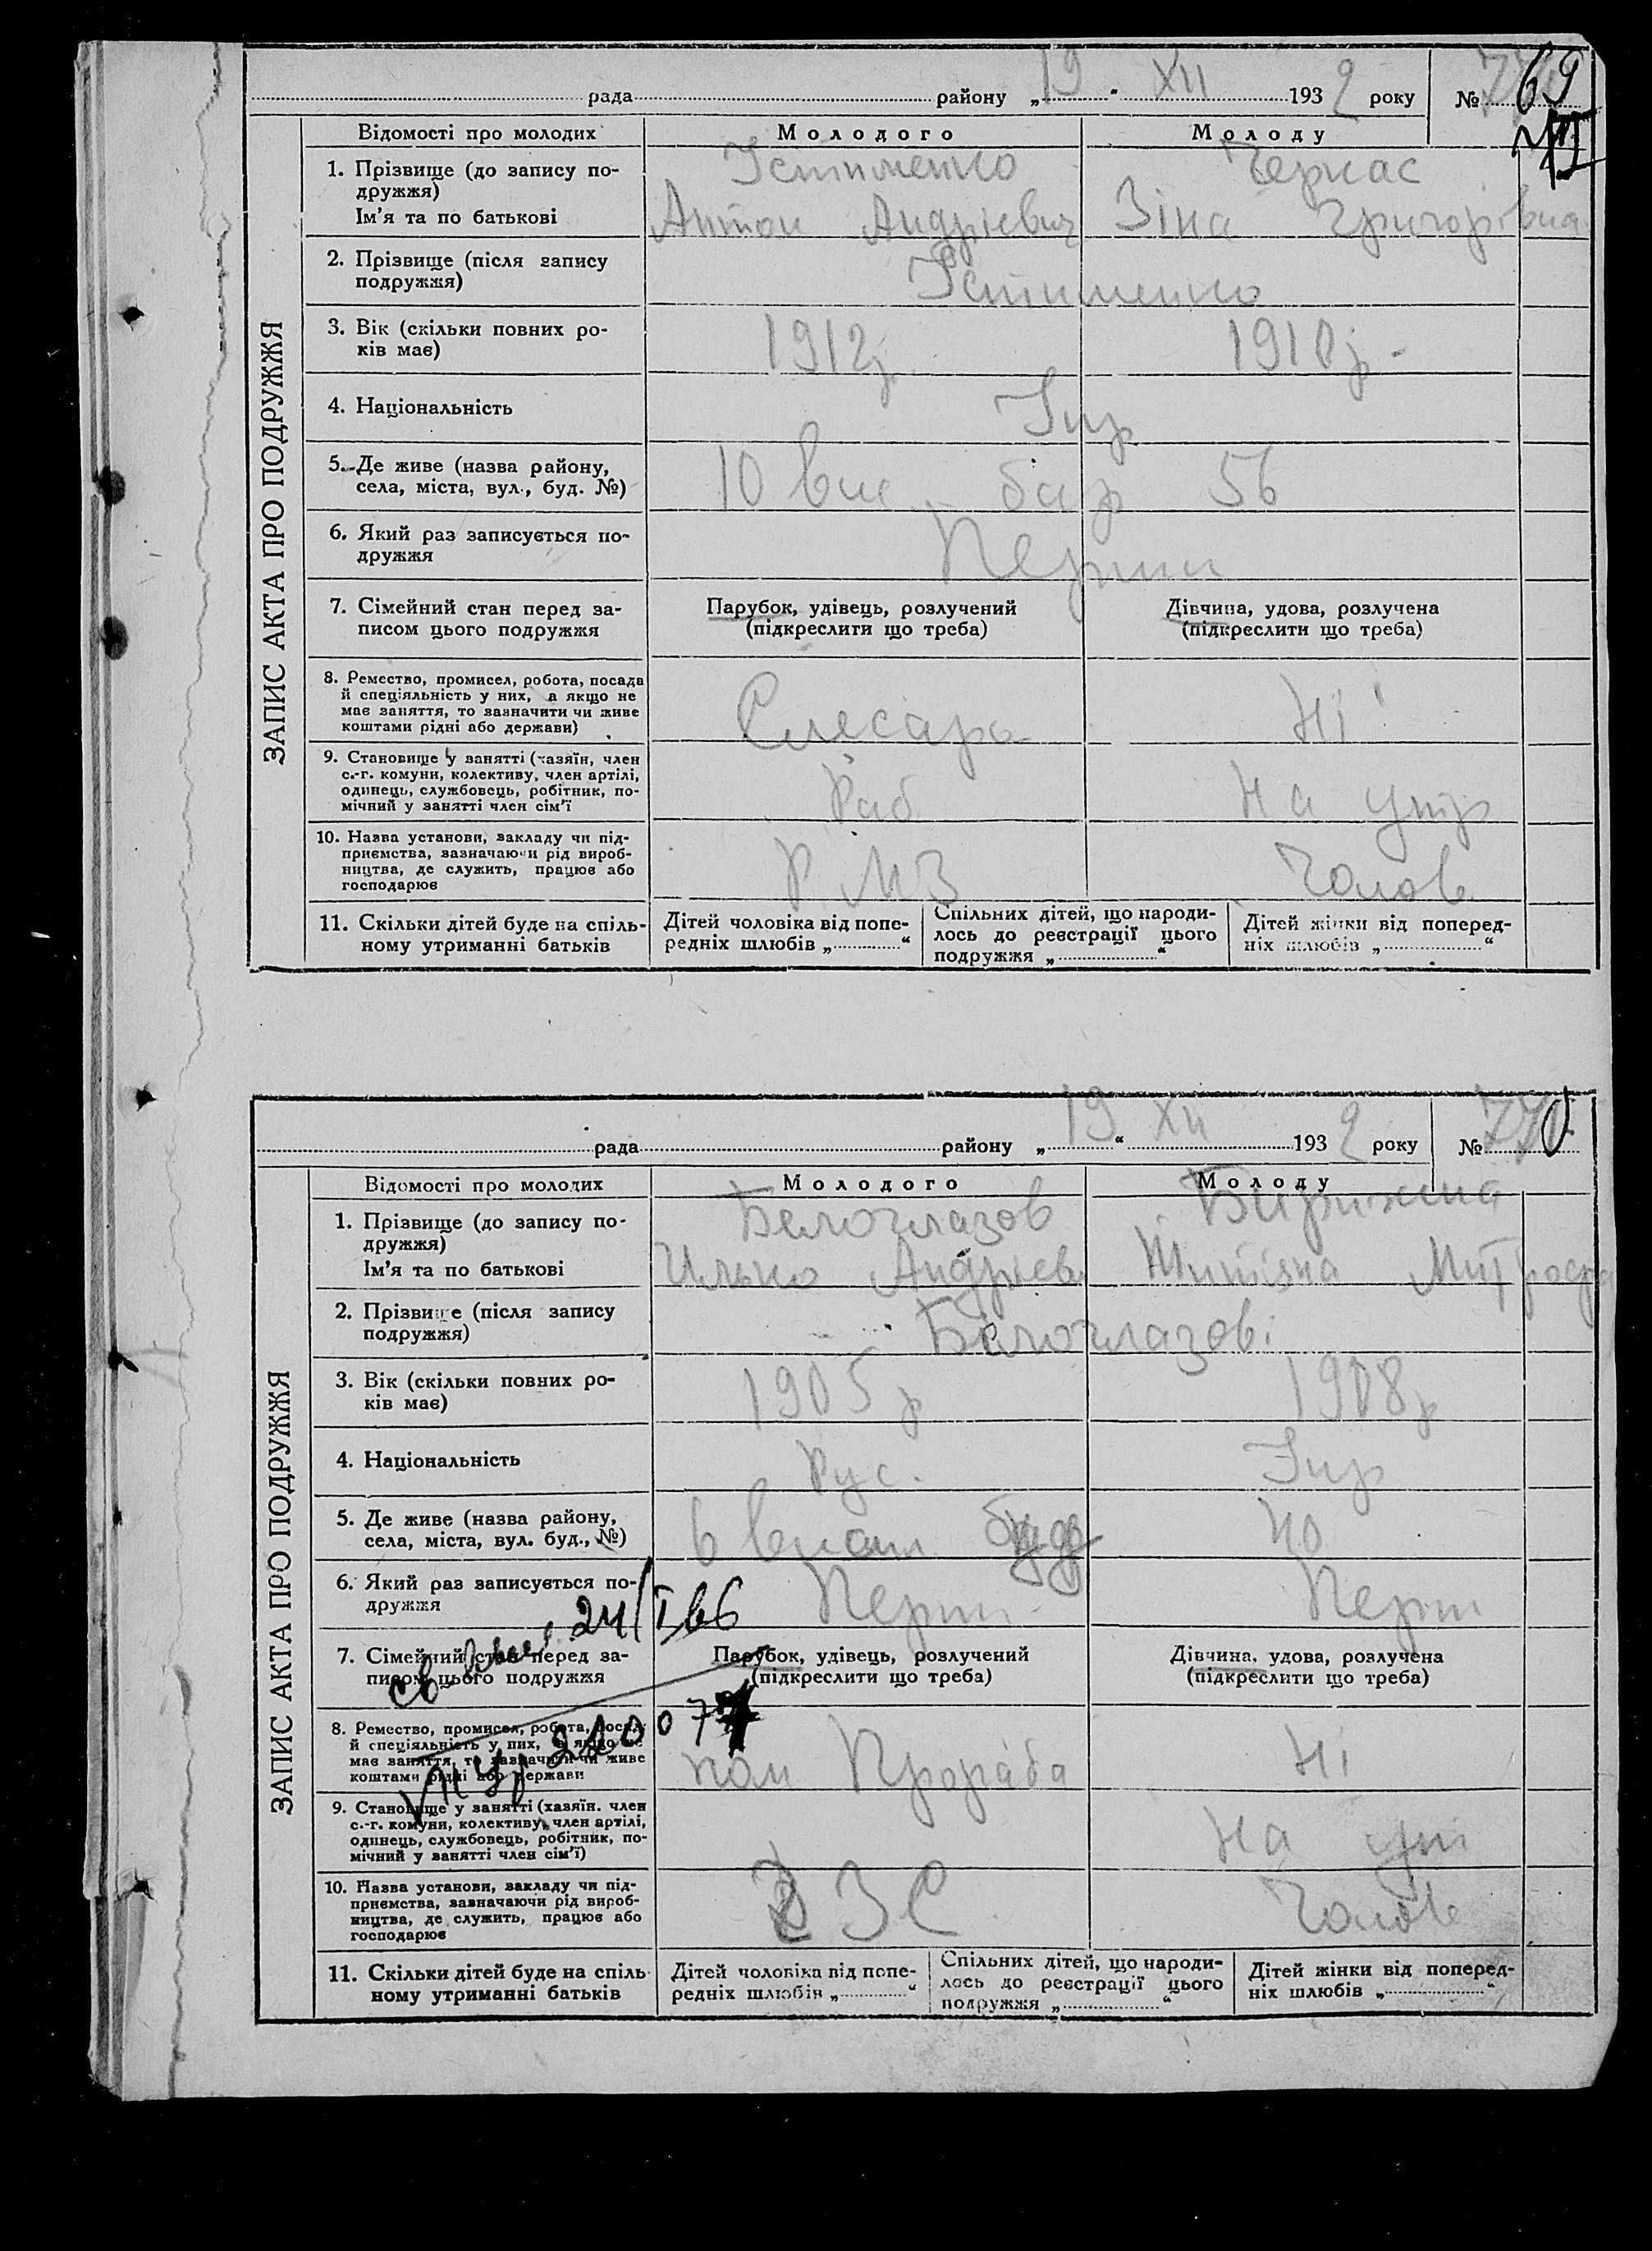 рада района „19" XII 1932 року № 69
ЗАПИС АКТА ПРО ПОДРУЖЖЯ
Відомості про молодих Молодого Молоду
1. Прізвище (до запису по-
дружжя)
Ім'я та по батькові
Черкас
Антон Андрієвич Зіна Григорівна
2. Прізвище (після запису
подружжя)
3. Вік (скільки повних ро-
ків має)
1912р. 1910р.
4. Національність
Укр
5. Де живе (назва району,
села, міста, вул., буд. №)
10 вис. бар 56
6. Який раз записується по-
дружжя
Перший
7. Сімейний стан перед за-
писом цього подружжя
Парубок, удівець, розлучений
(підкреслити що треба)
Дівчина, удова, розлучена
(підкреслити що треба)
8. Ремество, промисел, робота, посада
й спеціяльність у них, а якщо не
має заняття, то зазначити чи живе
коштами рідні або держави)
Слесарь Ні
9. Становище у занятті (хазяїн, член
с.-г. комуни, колективу, член артілі,
одинець, службовець, робітник, по-
мічний у занятті член сім'ї
Раб. На утр
10. Назва установи, закладу чи під-
приємства, зазначаючи рід вироб-
ництва, де служить, працює або
господарює
Р.М.З Чолов.
11. Скільки дітей буде на спіль-
ному утриманні батьків
Дітей чоловіка від попе-
редніх шлюбів „ "
Спільних дітей, що народи-
лось до реєстрації цього
подружжя „ "
Дітей жінки від поперед-
ніх шлюбів „ "
рада району „19" XII 1932 року № 770
ЗАПИС АКТА ПРО ПОДРУЖЖЯ
Відомості про молодих Молодого Молоду
1. Прізвище (до запису по-
дружжя)
Ім'я та по батькові
Белоглазов
Илько Андрієв.
2. Прізвище (після запису
подружжя)
Белоглазові
3. Вік (скільки повних ро-
ків має)
1905р 1908р
4. Національність
Рус. Укр
5. Де живе (назва району,
села, міста, вул. буд., №)
6 40
6. Який раз записується по-
дружжя
Перш. Перш
7. Сімейний стан перед за-
писом цього подружжя
Парубок, удівець, розлучений
(підкреслити що треба)
Дівчина, удова, розлучена
(підкреслити що треба)
8. Ремество, промисел, робота, посада
й спеціяльність у них, а якщо не
має заняття, то зазначити чи живе
коштами рідні або держави
пом Прораба Ні
9. Становище у занятті (хазяїн. член
с.-г. комуни, колективу, член артілі,
одинець, службовець, робітник, по-
мічний у занятті член сім'ї)
На утр
10. Назва установи, закладу чи під-
приємства, зазначаючи рід вироб-
ництва, де служить, працює або
господарює
ДЗС Чолов
11. Скільки дітей буде на спіль-
ному утриманні батьків
Дітей чоловіка від попе-
редніх шлюбів „ "
Спільних дітей, що народи-
лось до реєстрації цього
подружжя „ "
Дітей жінки від поперед-
ніх шлюбів „ "